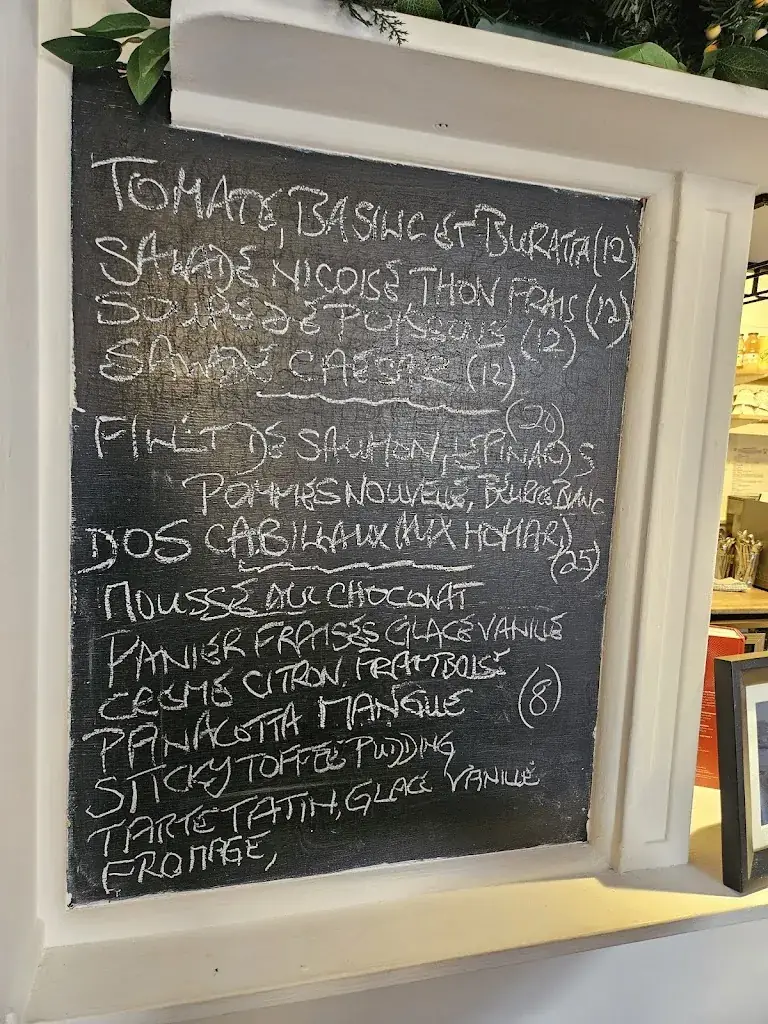 TOMATE, BASILIC ET BURATTA (12)
SALADE NICOISE, THON FRAIS (12)
SOUPE DE POISSONS (12)
SALADE CAESAR (12)
FILET DE SAUMON, EPINARDS (20)
POMMES NOUVELLE, BEURRE BLANC
DOS CABILLAUX (AUX HOMAR)
(25)
MOUSSE AU CHOCOLAT
PANIER FRAISES GLACE VANILLE
CREME CITRON, FRAMBOISE
PANACOTTA MANGUE (8)
STICKY TOFFEE PUDDING
TARTE TATIN, GLACE VANILLE
FROMAGE,